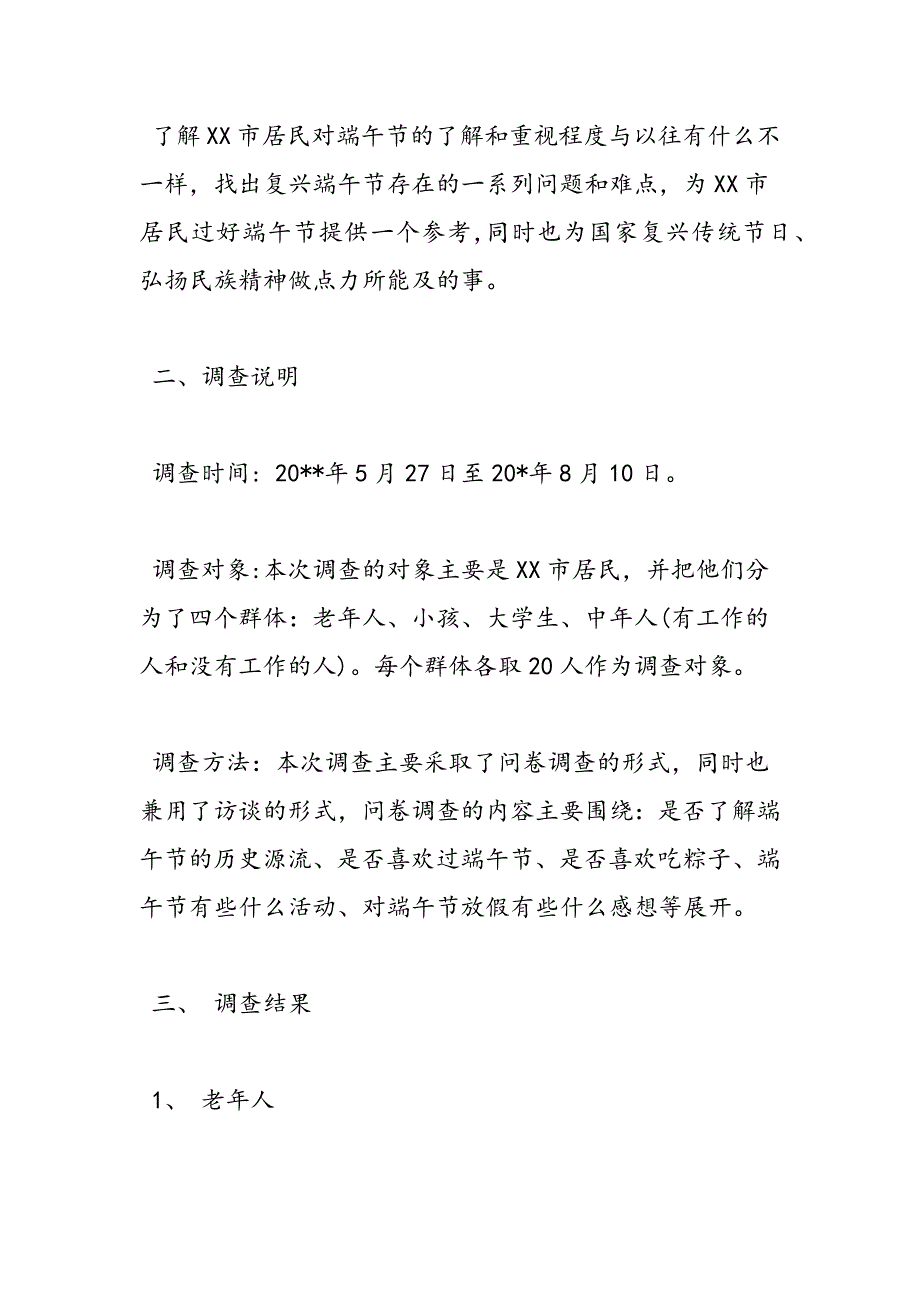 了解XX市居民对端午节的了解和重视程度与以往有什么不
一样，找出复兴端午节存在的一系列问题和难点，为XX市
居民过好端午节提供一个参考,同时也为国家复兴传统节日、
弘扬民族精神做点力所能及的事。
二、调查说明
调查时间：20**年5月27日至20*年8月10日。
调查对象:本次调查的对象主要是XX市居民，并把他们分
为了四个群体：老年人、小孩、大学生、中年人(有工作的
人和没有工作的人)。每个群体各取20人作为调查对象。
调查方法：本次调查主要采取了问卷调查的形式，同时也
兼用了访谈的形式，问卷调查的内容主要围绕：是否了解端
午节的历史源流、是否喜欢过端午节、是否喜欢吃粽子、端
午节有些什么活动、对端午节放假有些什么感想等展开。
三、 调查结果
1、 老年人